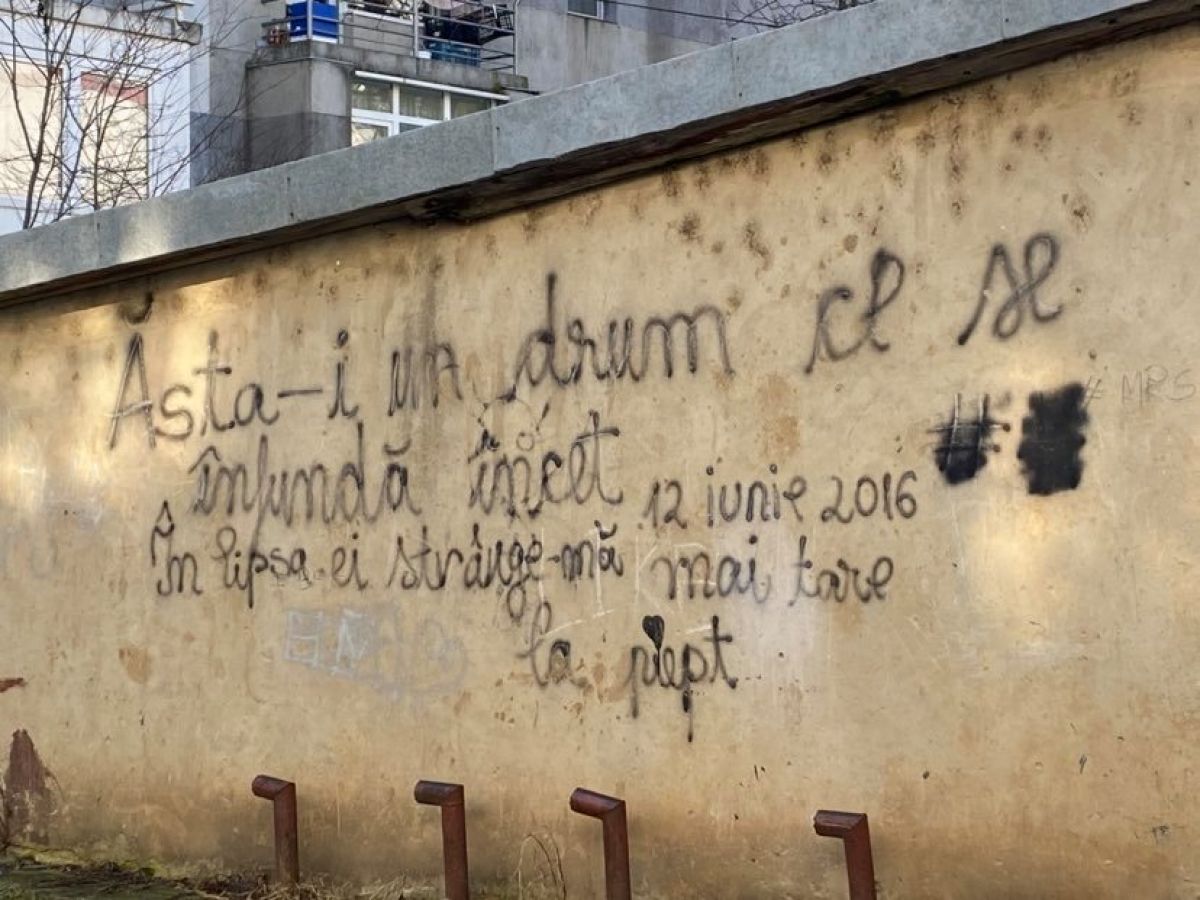 Asta-i un drum ce se
înfundă încet 12 iunie 2016
În lipsa ei strânge-mă mai tare
la piept
# MRS